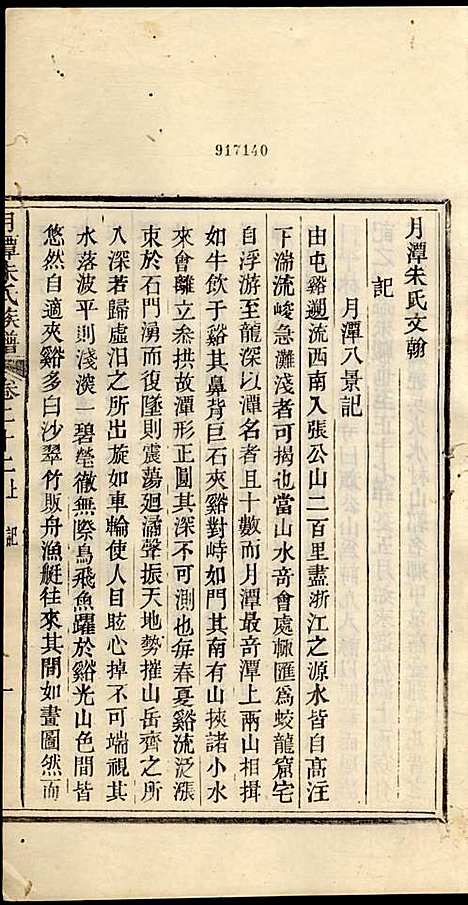 917140
月潭朱氏文翰
記
月潭八景記
由屯谿遡流西南入張公山二百里盡浙江之源水皆自高注
下湍流峻急灘淺者可揭也當山水竒會處輒匯爲蛟龍窟宅
自浮游至龍深以潭名者且十數而月潭最竒潭上兩山相揖
如牛飲于谿其鼻背巨石夾谿對峙如門其南有山挾諸小水
來會離立叅拱故潭形正圓其深不可測也每春夏谿流泛漲
束於石門湧而復墜則震蕩廻潏聲振天地勢摧山岳齊之所
入深若歸虛汨之所出旋如車輪使人目眩心掉不可端視其
水落波平則淺漠一碧瑩徹無際鳥飛魚躍於谿光山色間皆
悠然自適夾谿多白沙翠竹販舟漁艇徃來其間如畫圖然而
月潭朱氏族譜 卷二十二上 記